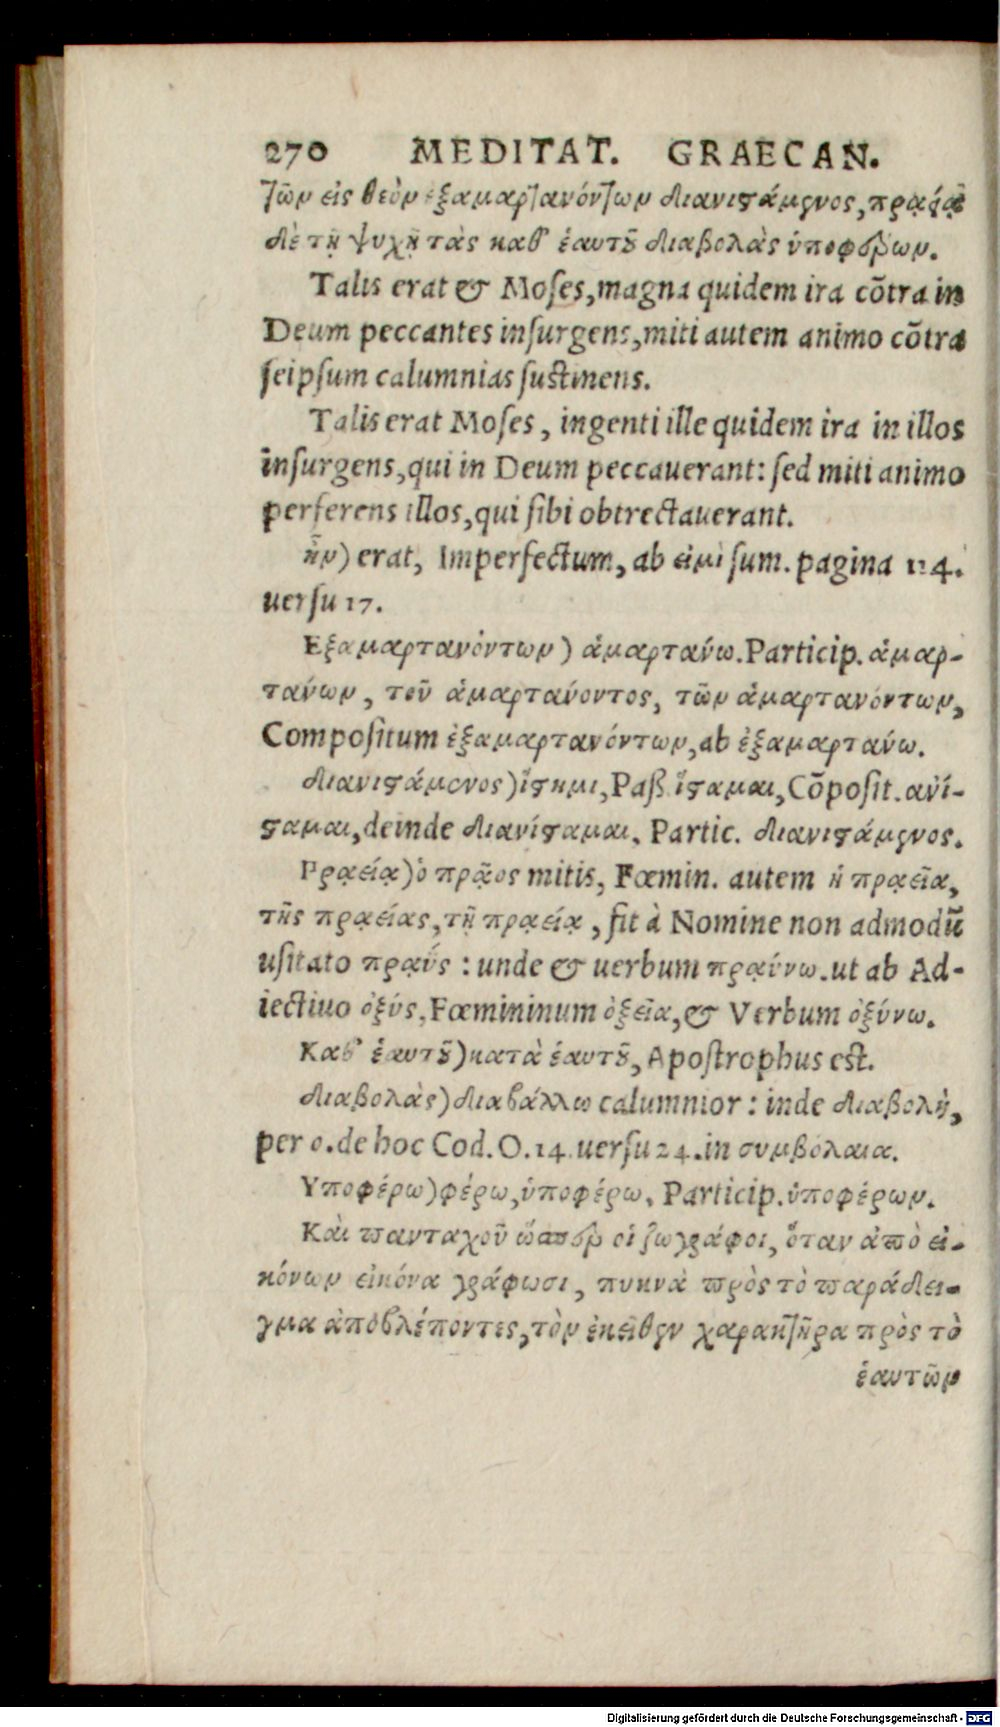 270 MEDITAT. GRAECAN.
τῶν εἰς θεὸν ἐξαμαρτανόντων διανιϛάμενος, πρᾳείᾳ
δὲ τῇ ψυχῇ τὰς καθ' ἑαυτοῦ διαβολὰς ὑποφέρων.
Talis erat & Moſes, magna quidem ira cõtra in
Deum peccantes inſurgens, miti autem animo cõtra
ſeipſum calumnias ſuſtinens.
Talis erat Moſes, ingenti ille quidem ira in illos
inſurgens, qui in Deum peccauerant: ſed miti animo
perferens illos, qui ſibi obtrectauerant.
ἦν) erat, Imperfectum, ab εἰμὶ ſum. pagina 124.
uerſu 17.
Εξαμαρτανόντων) ἁμαρτάνω. Particip. ἁμαρ-
τάνων, τοῦ ἁμαρτάνοντος, τῶν ἁμαρτανόντων,
Compoſitum ἐξαμαρτανόντων, ab ἐξαμαρτάνω.
διανιϛάμενος) ἵϛημι, Paß. ἵϛαμαι, Cõpoſit. ανί-
ϛαμαι, deinde διανίϛαμαι, Partic. διανιϛάμενος.
Πρᾳείᾳ) ὁ πρᾷος mitis, Fœmin. autem ἡ πρᾳεῖα,
τῆς πρᾳείας, τῇ πρᾳείᾳ, fit à Nomine non admodũ
uſitato πρᾳΰς : unde & uerbum πρᾳΰνω. ut ab Ad-
iectiuo ὀξύς, Fœmininum ὀξεῖα, & Verbum ὀξύνω.
Καθ' ἑαυτοῦ) κατὰ ἑαυτοῦ, Apoſtrophus est.
διαβολὰς) διαβάλλω calumnior : inde διαβολὴ,
per o. de hoc Cod. O. 14. uerſu 24. in συμβόλαια.
Υποφέρω) φέρω, ὑποφέρω, Particip. ὑποφέρων.
Καὶ πανταχοῦ ὥσπερ οἱ ζωγράφοι, ὅταν ἀπὸ εἰ-
κόνων εἰκόνα γράφωσι, πυκνὰ πρὸς τὸ παράδει-
γμα ἀποβλέποντες, τὸν ἐκεῖθεν χαρακτῆρα πρὸς τὸ
ἑαυτῶν
Digitalisierung gefördert durch die Deutsche Forschungsgemeinschaft - DFG